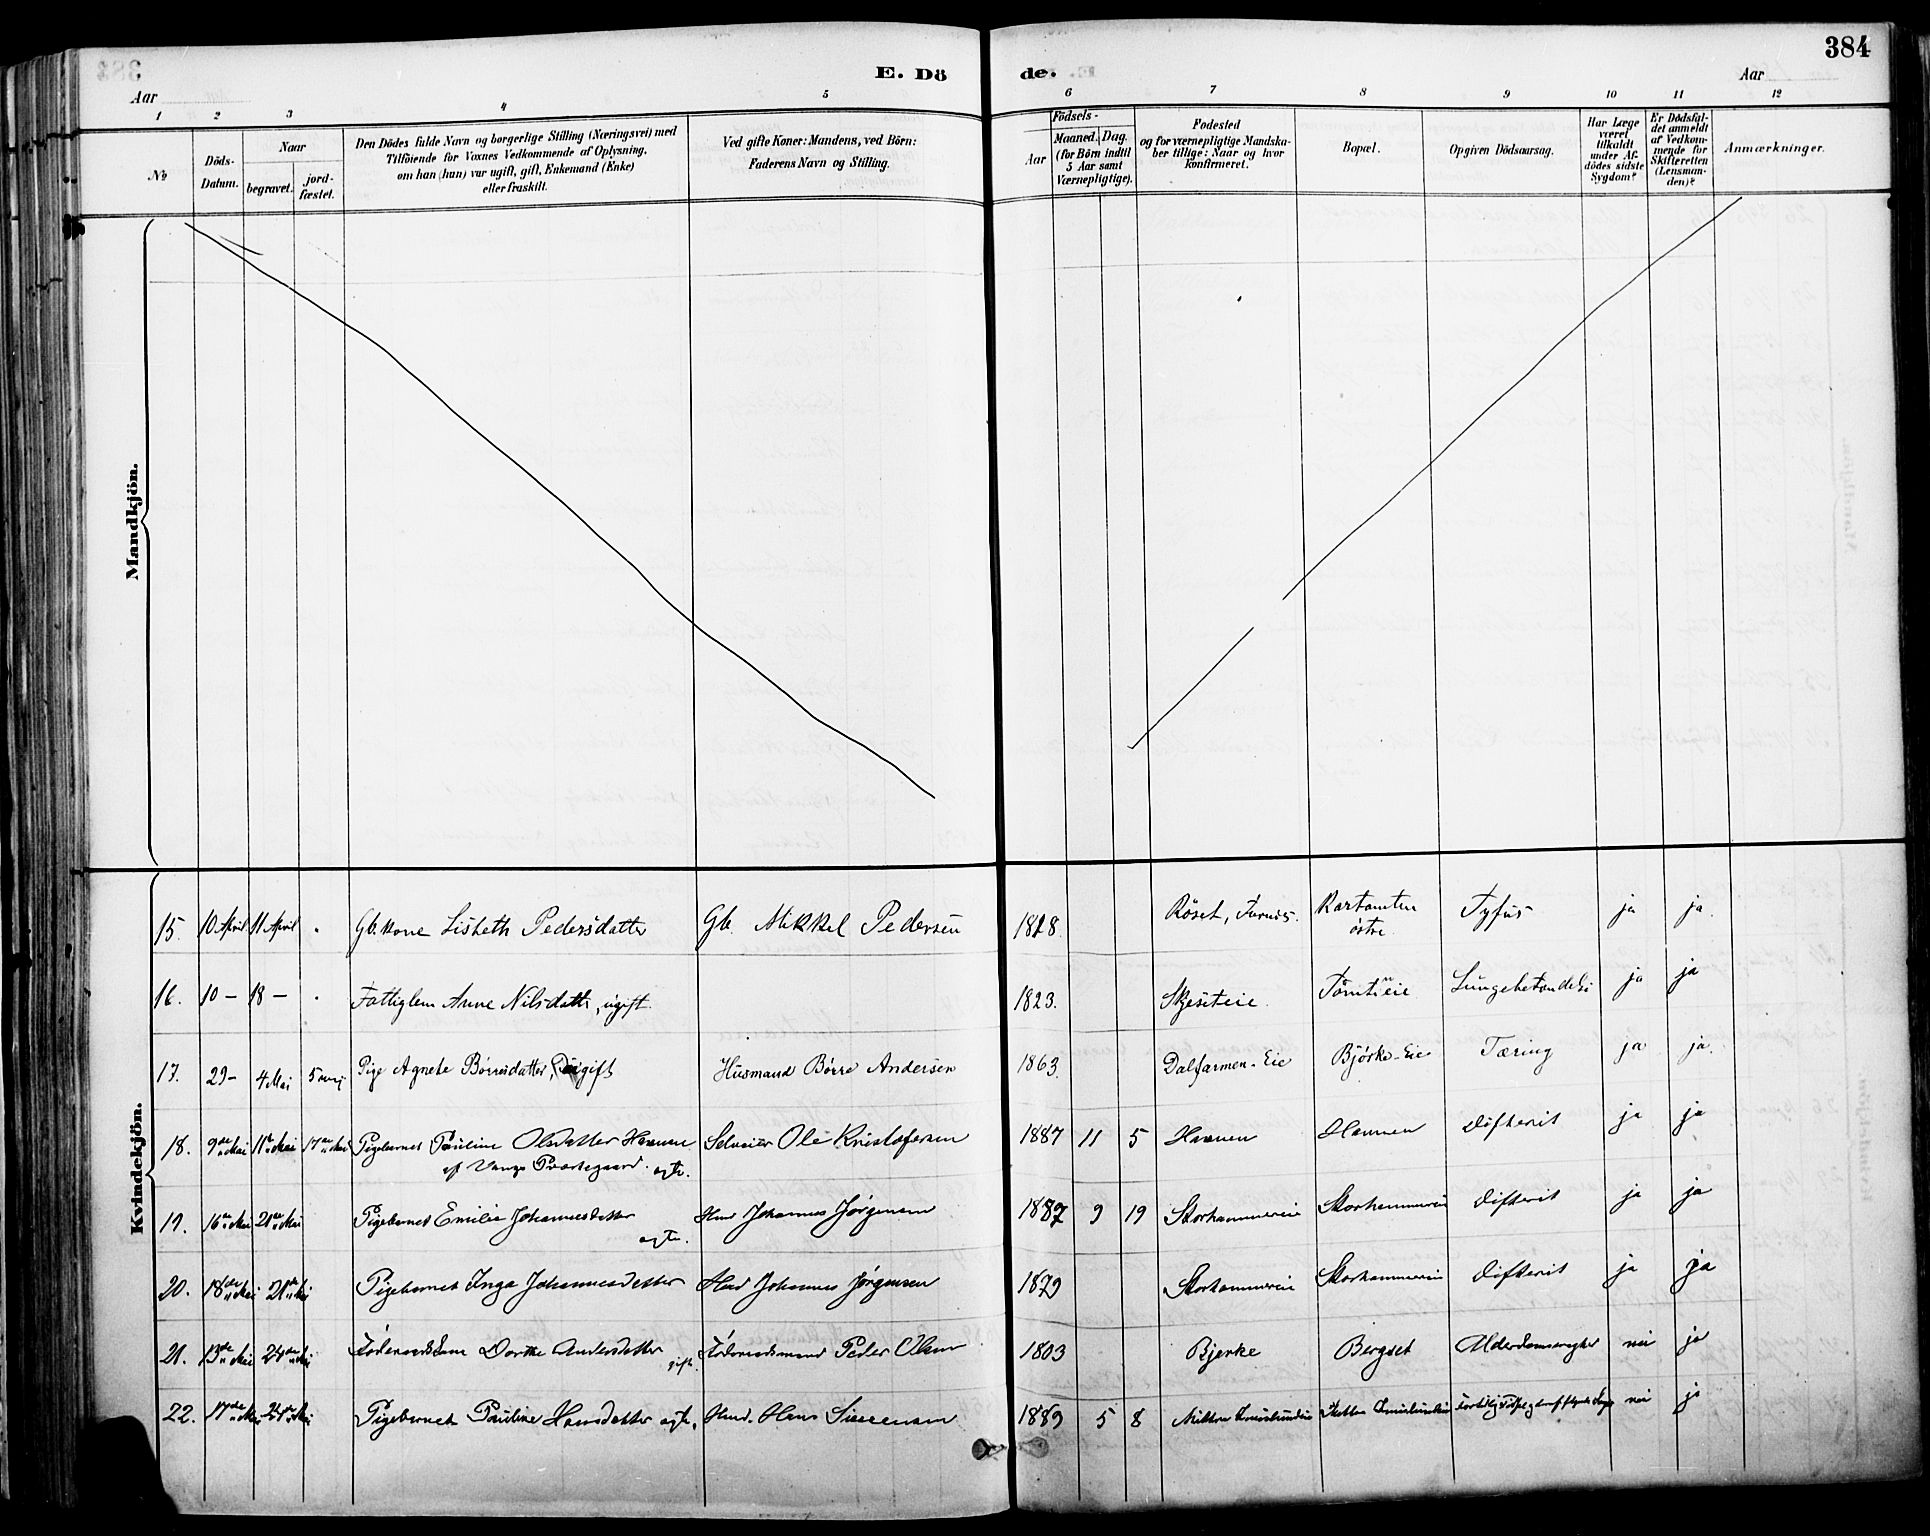 384
E. Dö de.
Aar Aar
1 2 3 4 5 6 7 8 9 10 11 12
No
Döds-Datum.
Naar
begravet.
jord-fæstet.
Den Dödes fulde Navn og borgerlige Stilling (Næringsvei) med
Tilföiende for Voxnes Vedkommende af Oplysning,
om han (hun) var ugift, gift, Enkemand (Enke)
eller fraskilt.
Ved gifte Koner: Mandens, ved Börn:
Faderens Navn og Stilling.
Födsels-
Aar
Maaned. Dag.
(for Börn indtil
5 Aar samt
Værnepligtige).
Födested
og for værnepligtige Mandska-
ber tillige: Naar og hvor
konfirmeret.
Bopæl.
Opgiven Dödsaarsag.
Har Læge
været
tilkaldt
under Af-
dödes sidste
Sygdom?
Er Dödsfal-
det anmeldt
af Vedkom-
mende for
Skifteretten
(Lensman-
den)?
Anmærkninger.
Mandkjön.
Kvindekjön.
15. 10 April 11 April Gbkone Lisbeth Pedersdatter Gb. Mikkel Pedersen 1828. Röset, Furnes. østre Tyfus ja ja.
16. 10 – 18 – Fattiglem Anne Nilsdatt, ugift. 1823. Skjeseteie. ja ja
17. 29 – 4 Mai 5 Pige Agnete Børresdatter, ugift Husmand Børre Andersen 1863. Dalfarmen-Eie Bjørke-Eie Tæring ja ja.
18. 9de Mai 11te Mai 17de Mai Pigebarnet Pauline Olsdatter Hannen Selveier Ole Kristofersen 1887 11 5 Hannen Hannen Difterit ja ja
af Vangs Præstegaard. ægte.
19. 16de Mai 21de Mai Pigebarnet Emilie Johannesdatter Hmd Johannes Jørgensen 1887 9 19 Storhammereie Storhammereie Difterit ja ja
ægte.
20. 18de Mai 21de Mai Pigebarnet Inga Johannesdatter Hmd Johannes Jørgensen 1879 Storhammereie Storhammereie Difterit ja ja
21. 13de Mai 24de Mai Dorthe Andersdatter Föderaadsmand Peder Olsen 1803 Bjerke Bergset nei ja
gift.
22. 17de Mai 24de Mai Pigebarnet Pauline Hansdatter ægte. Hmd. Hans Simensen 1889 5 8 nei ja